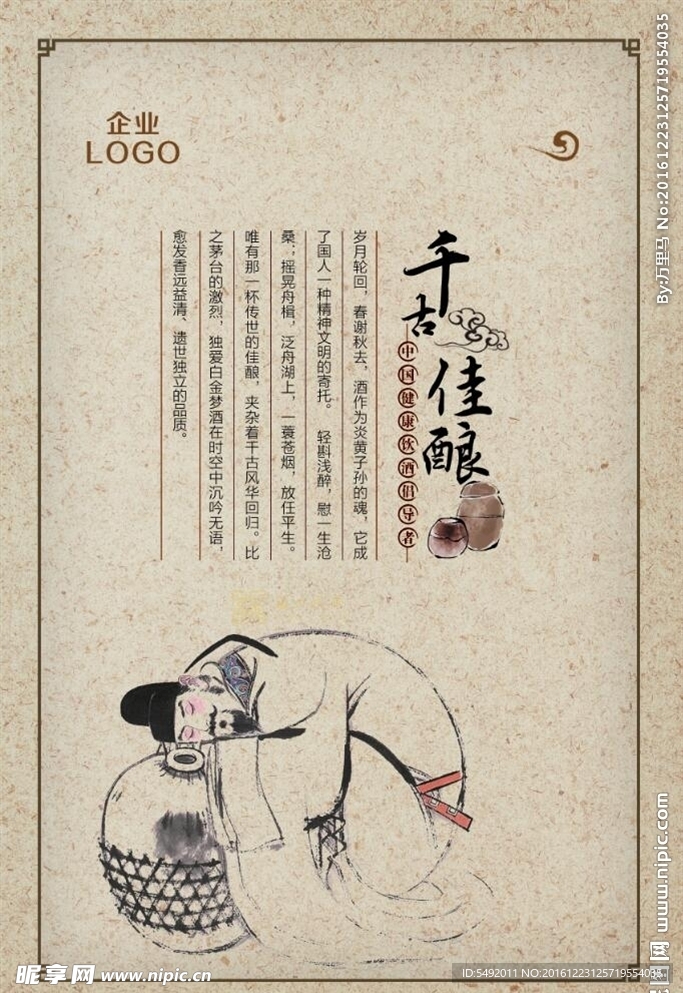 企业
LOGO
千古佳酿
中国健康饮酒倡导者
岁月轮回，春谢秋去，酒作为炎黄子孙的魂，它成
了国人一种精神文明的寄托。 轻斟浅醉，慰一生沧
桑；摇晃舟楫，泛舟湖上，一蓑苍烟，放任平生。
唯有那一杯传世的佳酿，夹杂着千古风华回归。比
之茅台的激烈，独爱白金梦酒在时空中沉吟无语，
愈发香远益清、遗世独立的品质。
By:万里马 No:20161223125719554035
昵享网 www.nipic.cn
ID:5492011 NO:20161223125719554035
昵图网 www.nipic.com